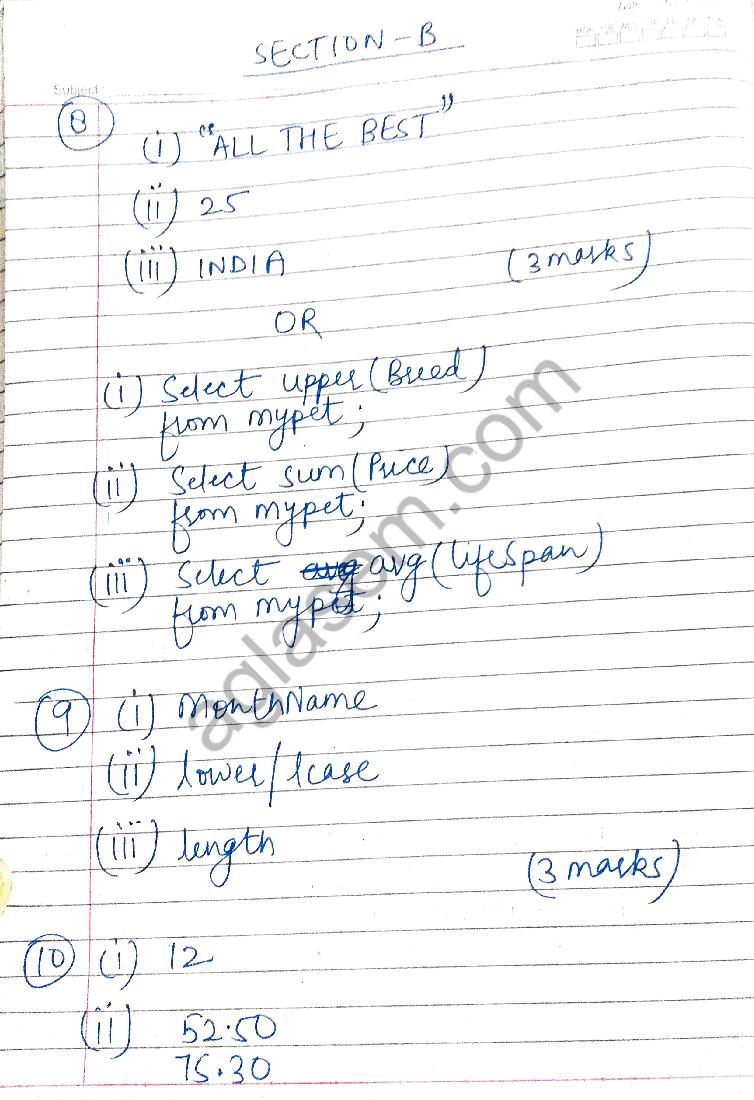 SECTION-B
Subject
8
(i) "ALL THE BEST"
(ii) 25
(iii) INDIA (3 marks)
OR
(i) Select upper(Breed)
from mypet;
(ii) Select sum(Price)
from mypet;
(iii) Select avg avg(lifespan)
from mypet;
aglasem.com
9 (i) MonthName
(ii) lower/lcase
(iii) length
(3 marks)
10 (i) 12
(ii) 52.50
75.30